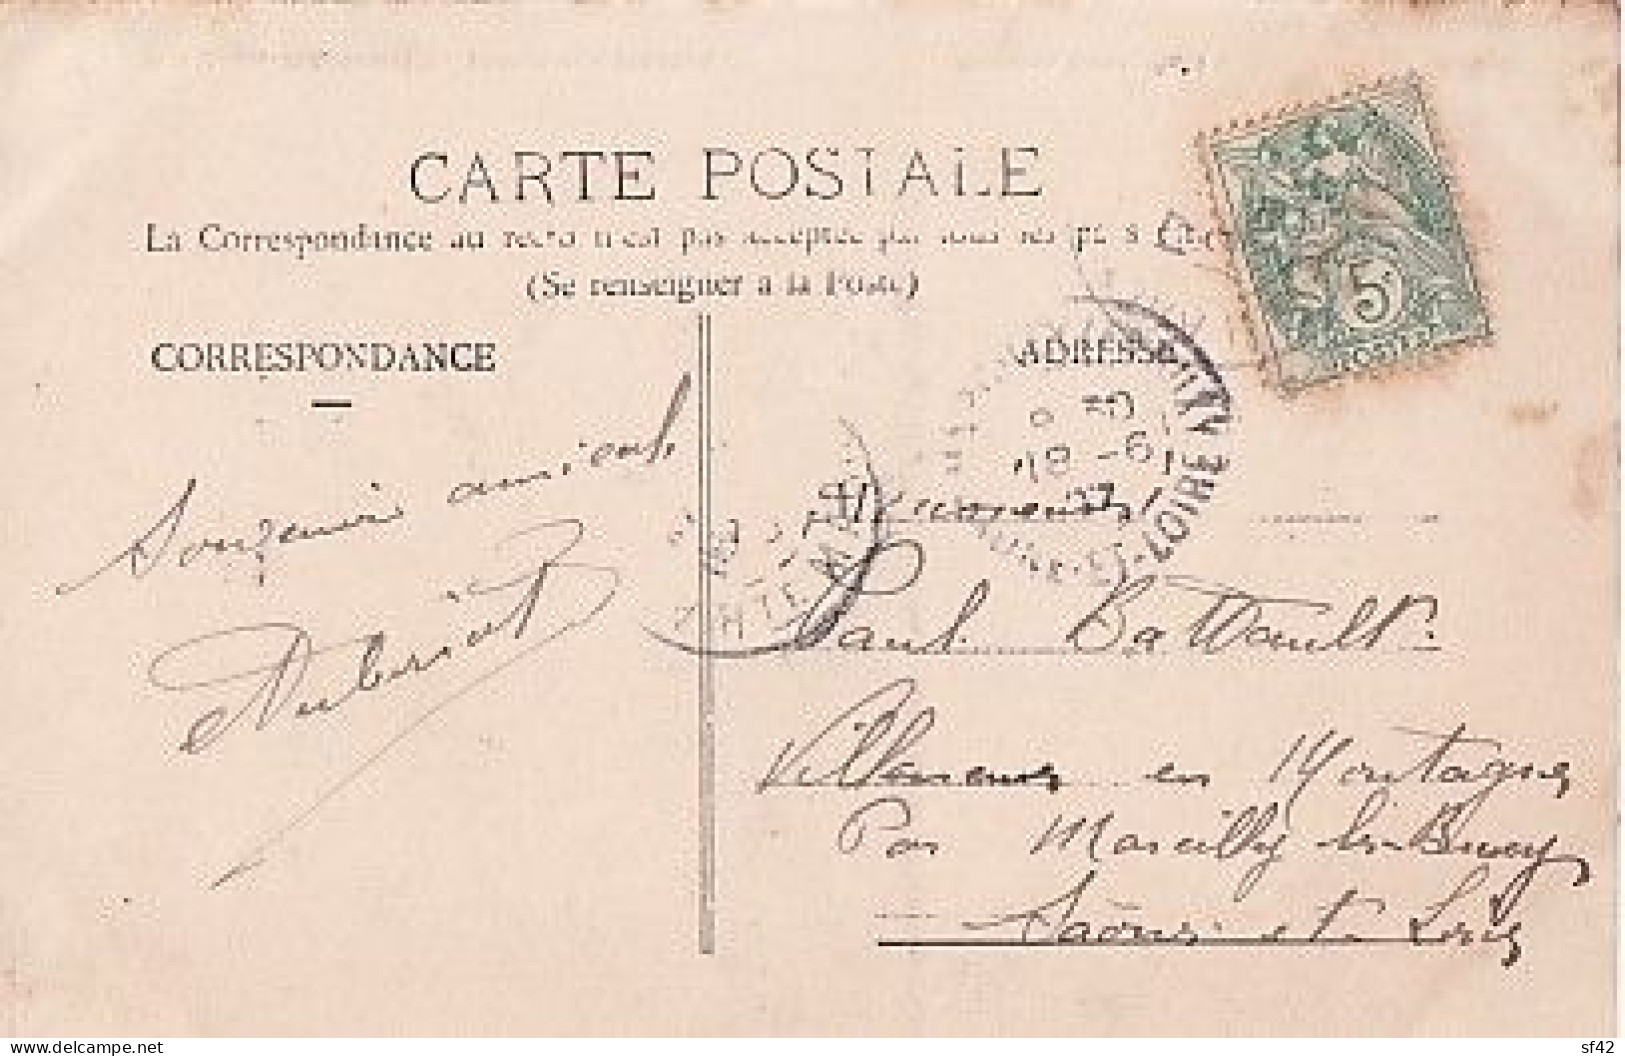 CARTE POSTALE
La Correspondance au recto n'est pas acceptée par tous les pays
(Se renseigner à la Poste)
CORRESPONDANCE
ADRESSE
Souvenir amical
Aubériot
Monsieur
Paul Battault
Villeneuve en Montagne
Par Marcilly les Buxy
Saône et Loire
5
POSTES
ET-LOIRE
delcampe.net
sf42